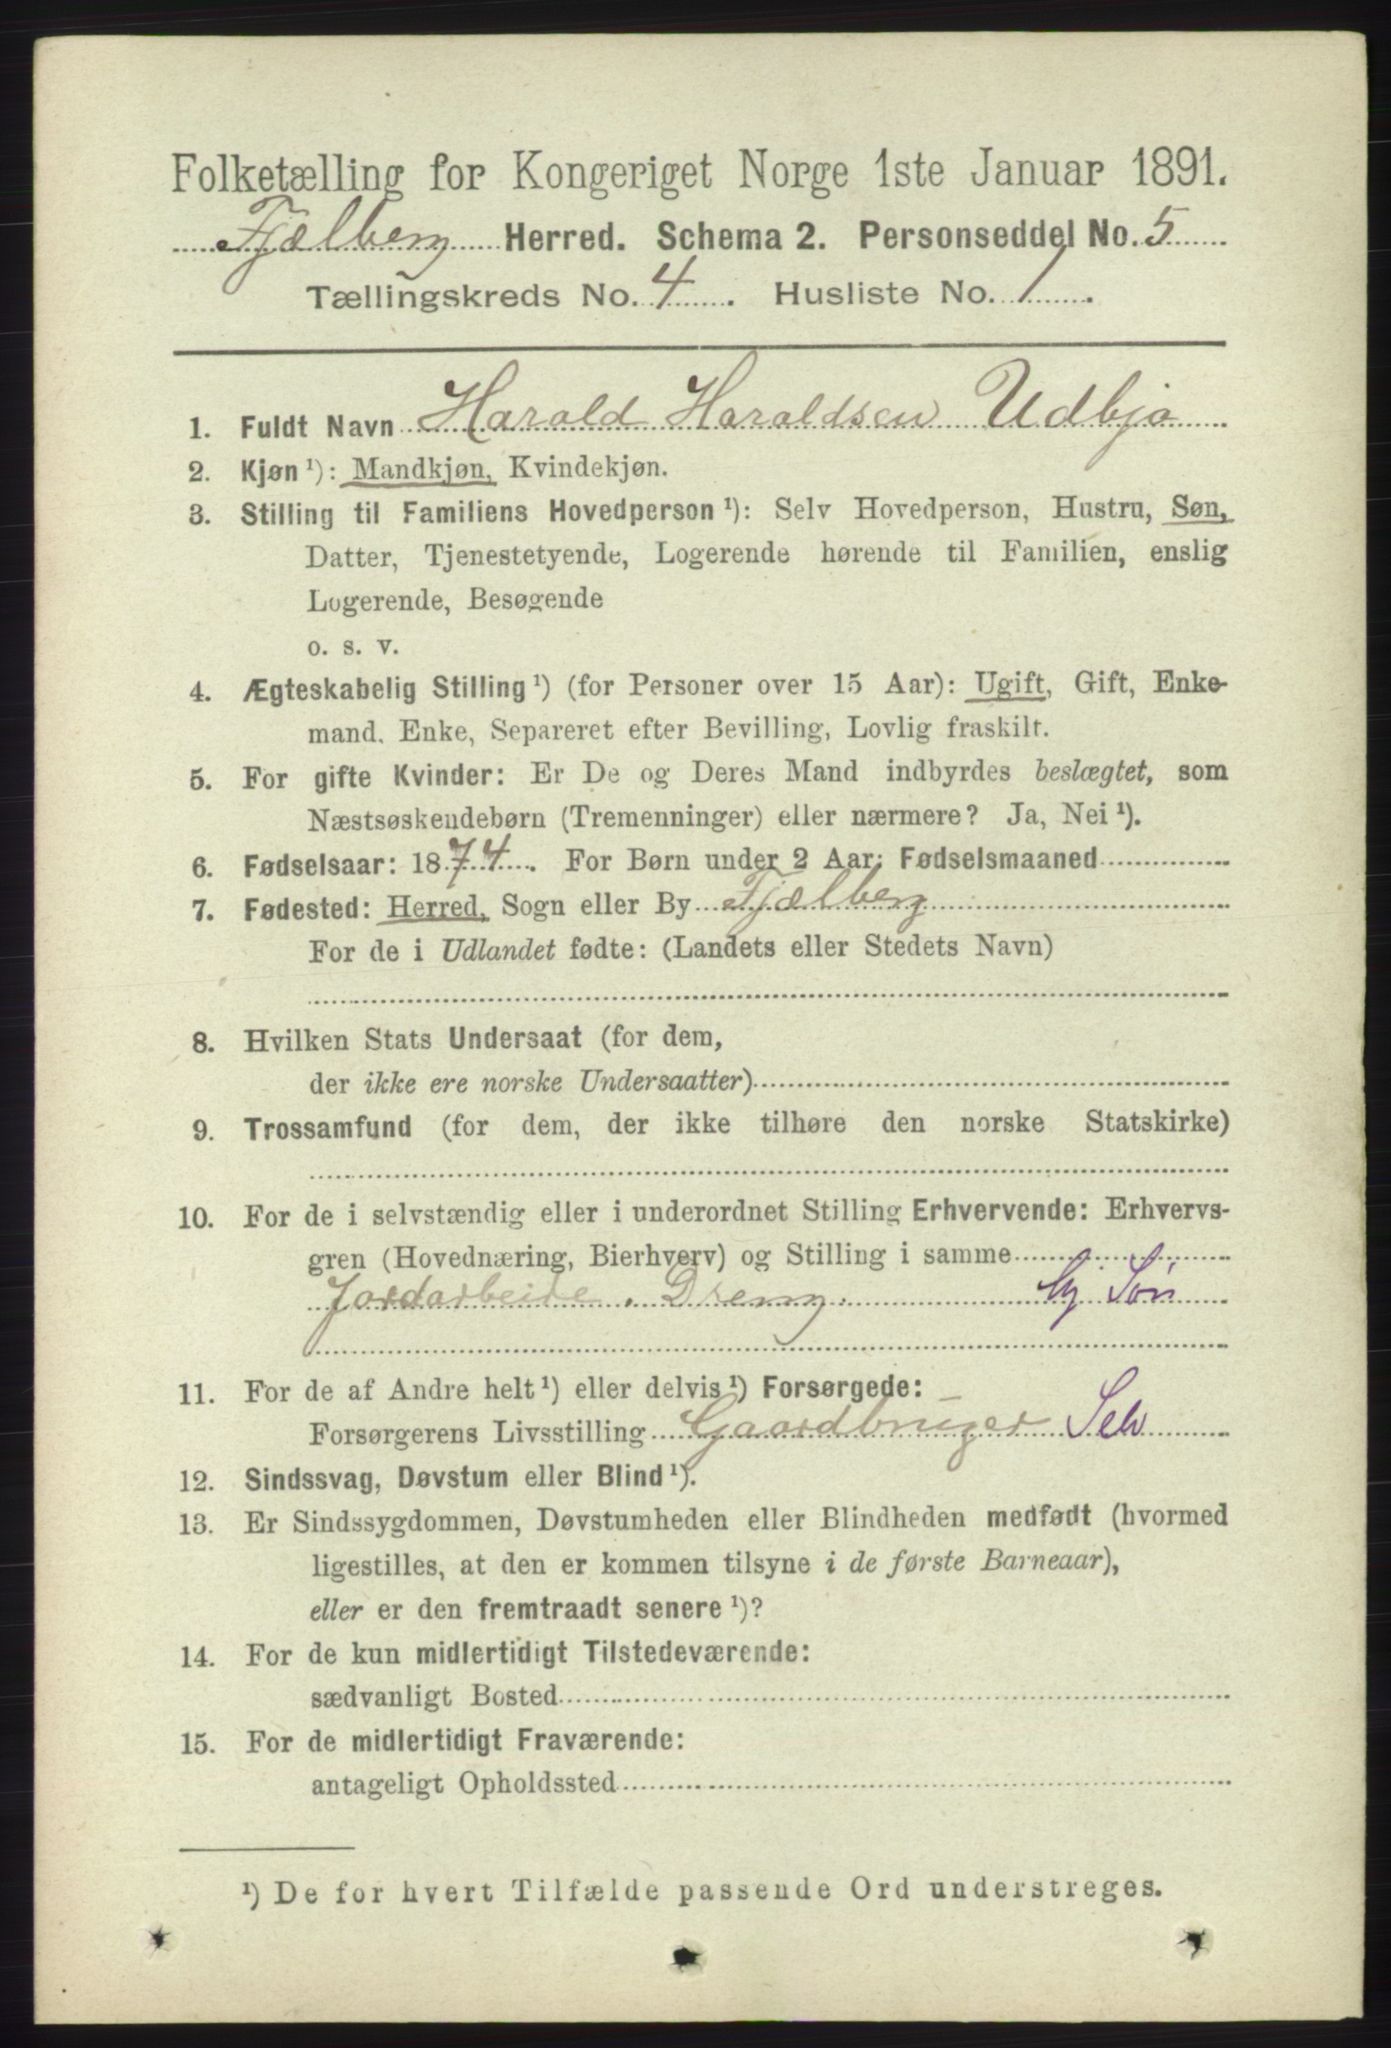 Folketælling for Kongeriget Norge 1ste Januar 1891.
Fjælberg Herred. Schema 2. Personseddel No. 5
Tællingskreds No. 4. Husliste No. 1.
1. Fuldt Navn Harald Haraldsen Udbjo
2. Kjøn ¹): Mandkjøn, Kvindekjøn.
3. Stilling til Familiens Hovedperson ¹): Selv Hovedperson, Hustru, Søn,
Datter, Tjenestetyende, Logerende hørende til Familien, enslig
Logerende, Besøgende
o. s. v.
4. Ægteskabelig Stilling ¹) (for Personer over 15 Aar): Ugift, Gift, Enke-
mand, Enke, Separeret efter Bevilling, Lovlig fraskilt.
5. For gifte Kvinder: Er De og Deres Mand indbyrdes beslægtet, som
Næstsøskendebørn (Tremenninger) eller nærmere? Ja, Nei ¹).
6. Fødselsaar: 1874. For Børn under 2 Aar: Fødselsmaaned
7. Fødested: Herred, Sogn eller By Fjælberg
For de i Udlandet fødte: (Landets eller Stedets Navn)
8. Hvilken Stats Undersaat (for dem,
der ikke ere norske Undersaatter)
9. Trossamfund (for dem, der ikke tilhøre den norske Statskirke)
10. For de i selvstændig eller i underordnet Stilling Erhvervende: Erhvervs-
gren (Hovednæring, Bierhverv) og Stilling i samme
Jordarbeide. Dreng. Søn
11. For de af Andre helt ¹) eller delvis ¹) Forsørgede:
Forsørgerens Livsstilling Gaardbruger Selv
12. Sindssvag, Døvstum eller Blind ¹).
13. Er Sindssygdommen, Døvstumheden eller Blindheden medfødt (hvormed
ligestilles, at den er kommen tilsyne i de første Barneaar),
eller er den fremtraadt senere ¹)?
14. For de kun midlertidigt Tilstedeværende:
sædvanligt Bosted
15. For de midlertidigt Fraværende:
antageligt Opholdssted
¹) De for hvert Tilfælde passende Ord understreges.